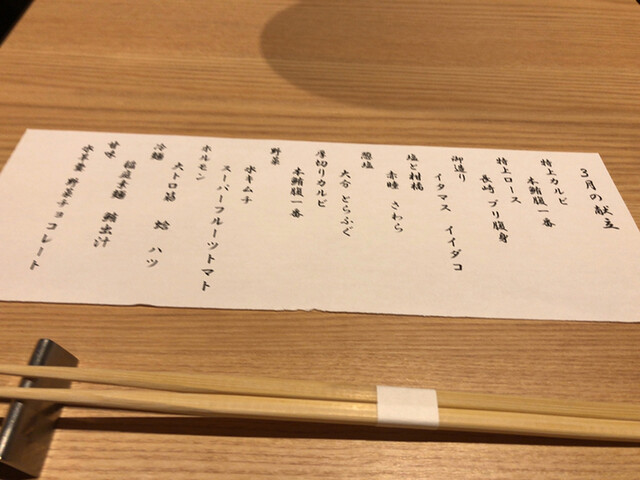 3月の献立
特上カルビ
本鮪腹一番
特上ロース
長崎 ブリ腹身
御造り
イタマス イイダコ
塩と柑橘
赤睦 さわら
葱塩
大分 とらふぐ
厚切りカルビ
本鮪腹一番
野菜
水キムチ
スーパーフルーツトマト
ホルモン
大トロ筋 蛤 ハツ
冷麺
稲庭素麺 鯛出汁
甘味
水羊羹 野菜チョコレート